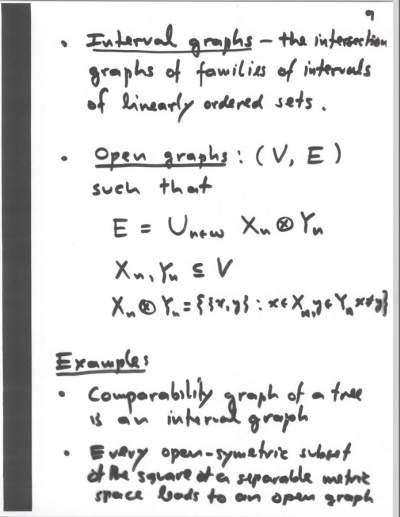 9
• Interval graphs – the intersection
graphs of families of intervals
of linearly ordered sets.
• Open graphs: (V, E)
such that
E = ∪n∈ω Xn ⊗ Yn
Xn, Yn ⊆ V
Xn ⊗ Yn = {{x,y} : x∈Xn, y∈Yn x≠y}
Examples:
• Comparability graph of a tree
is an interval graph
• Every open-symetric subset
of the square of a separable metric
space leads to an open graph